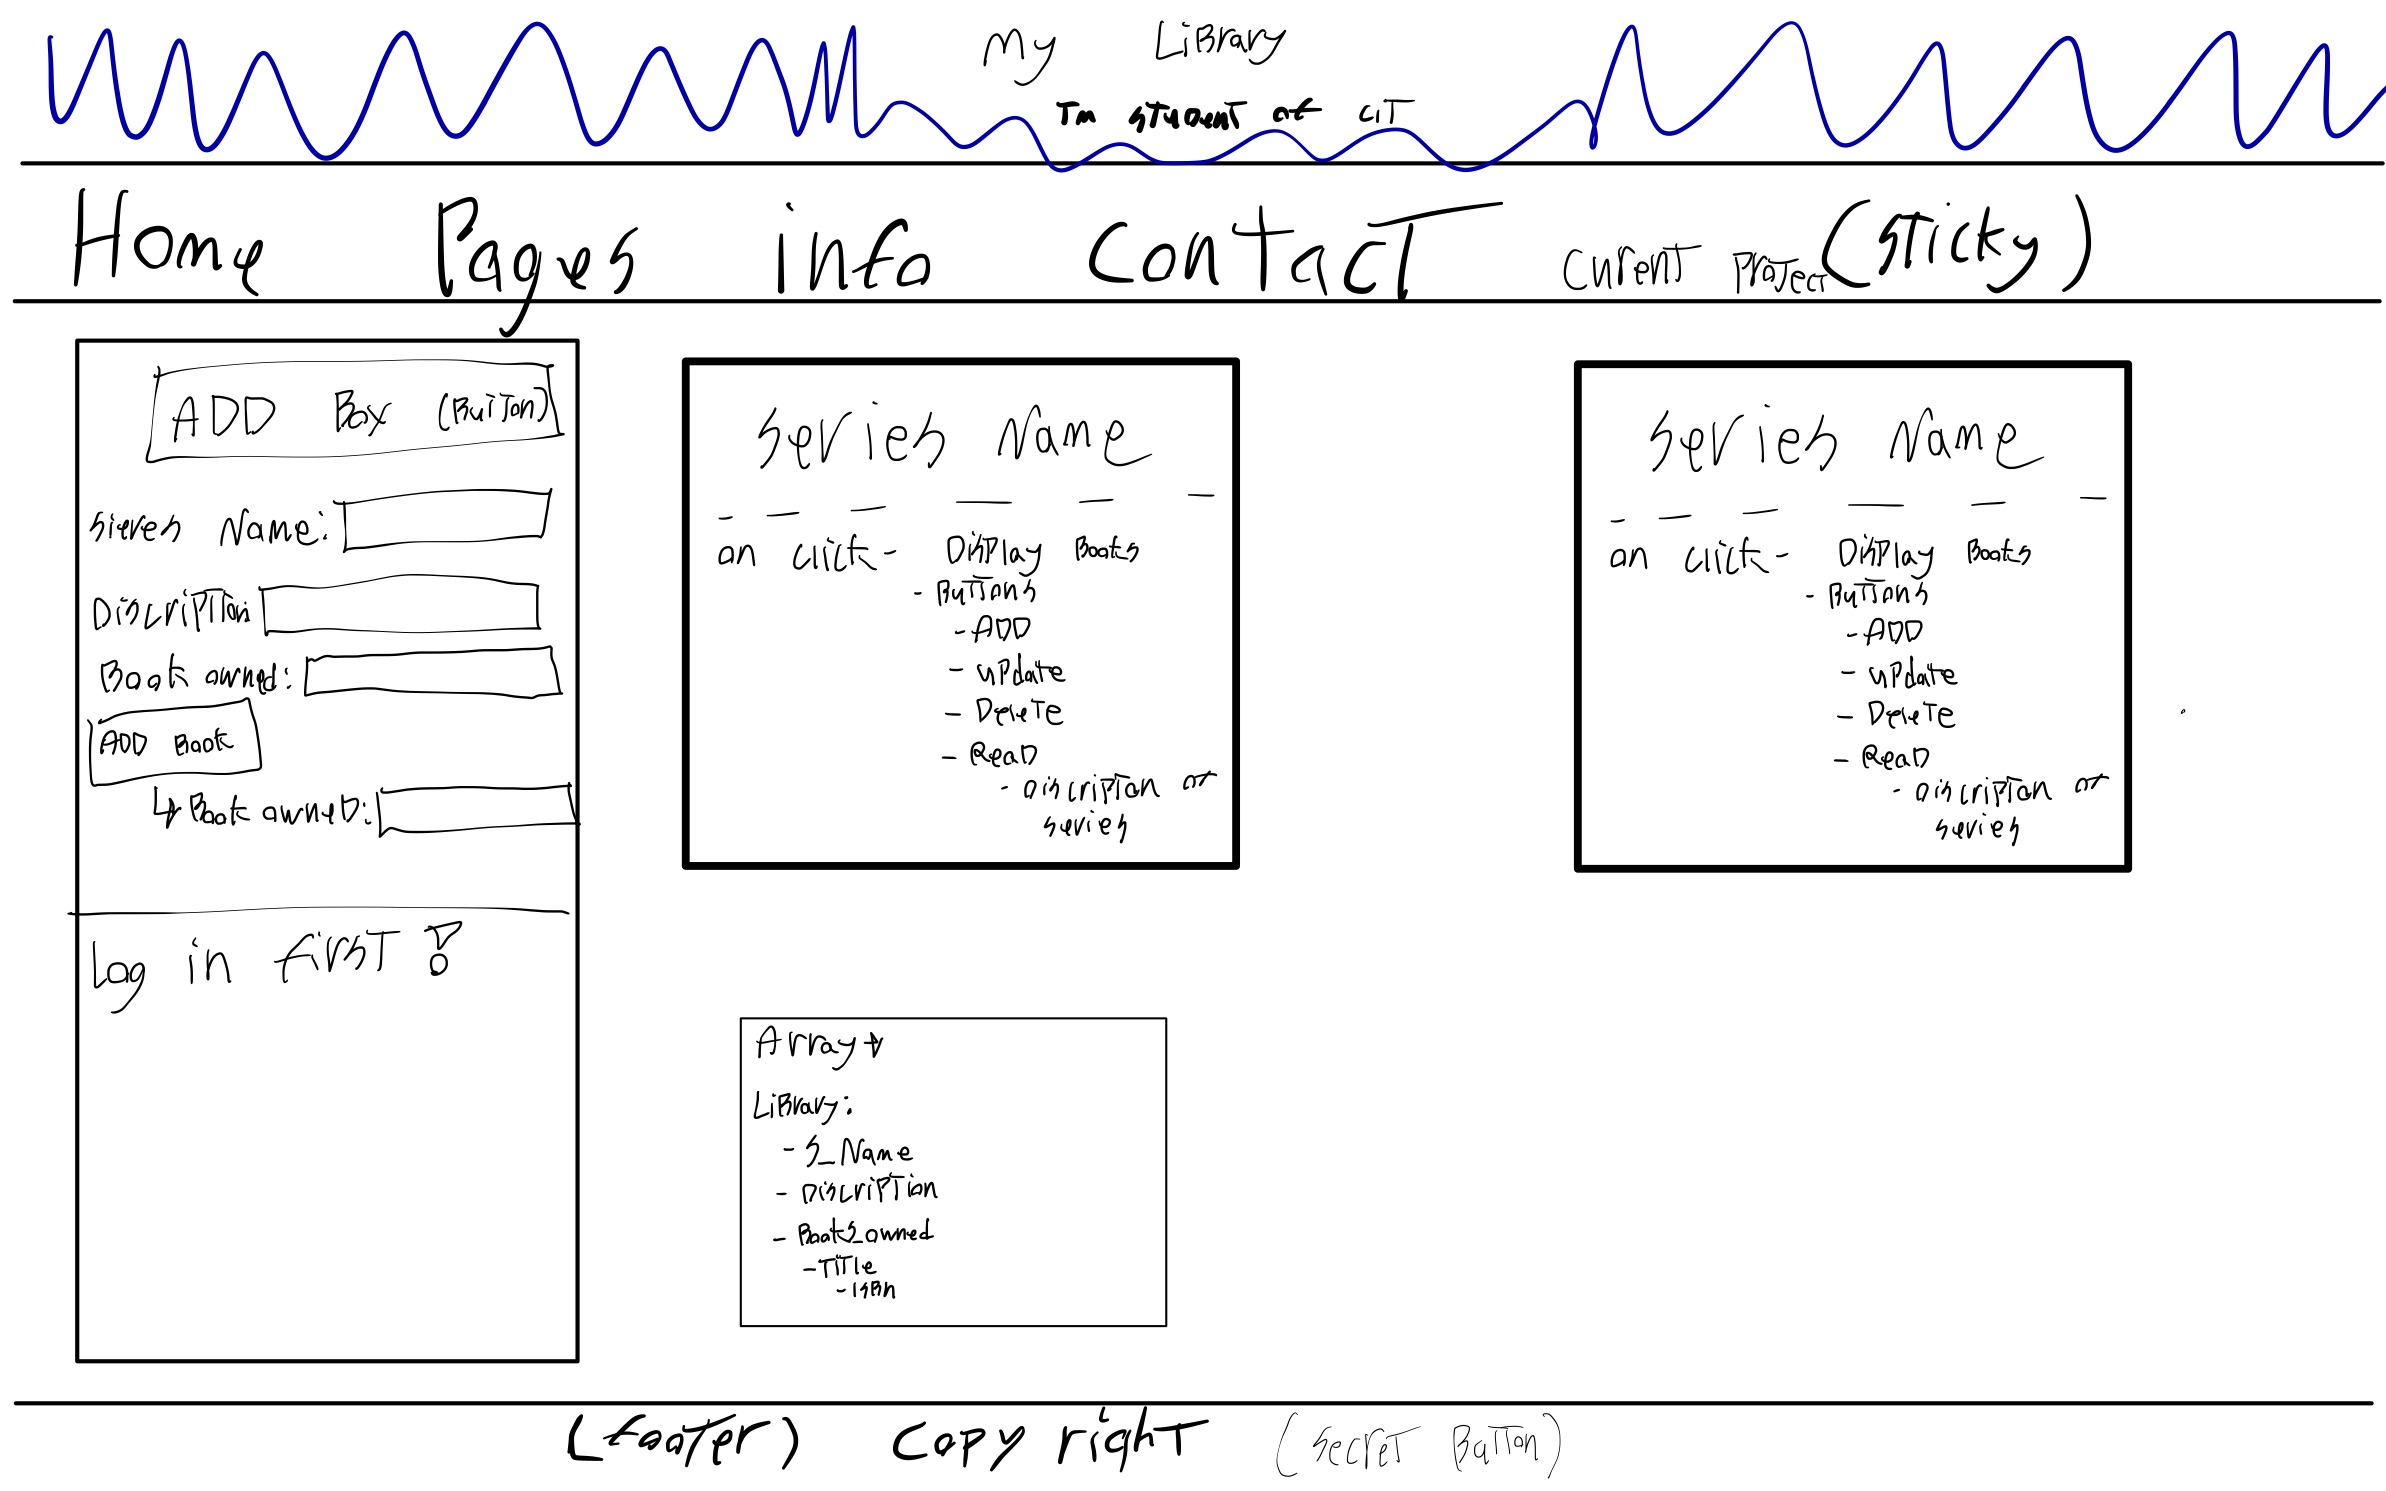 My Library
Im stuDent at ciT
Home Pages info contacT curenT ProJect (sticky)
ADD Box (BuTTon)
sieres Name:
DiscriPTion
Book owned:
ADD Book
↳ Book owneD:
Log in firsT !
series Name
on click - DisPlay Books
- BuTTons
- ADD
- uPdate
- DeleTe
- ReaD
- DiscriPTion or
series
series Name
on click - DisPlay Books
- BuTTons
- ADD
- uPdate
- DeleTe
- ReaD
- DiscriPTion or
series
Array
LiBrary:
- S_Name
- DiscriPTion
- Books_owned
- TiTle
- isBn
(fooTer) copy righT (secreT BuTTon)